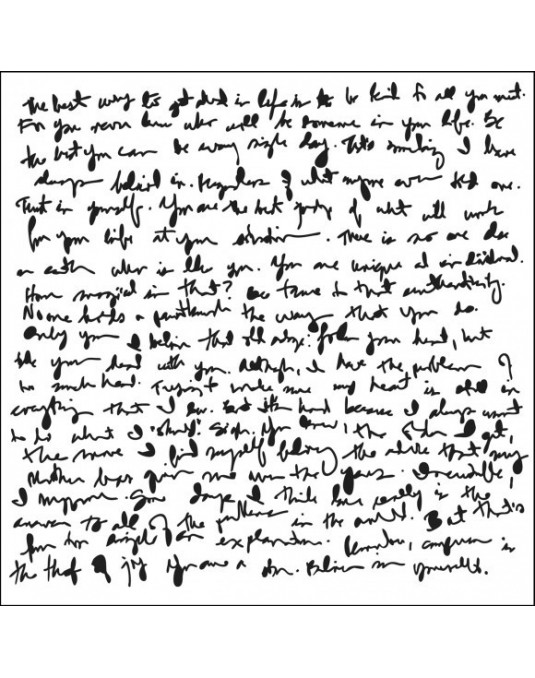 The best way to get ahead in life is to be kind to all you meet.
For you never know who will be someone in your life. Be
the best you can be every single day. It's something I have
always believed in. Regardless of what anyone ever did one.
Trust in yourself. You are the best judge of what will work
for your life at your. There is no one else
on earth who is like you. You are unique and individual.
How magical is that? Be true to that authenticity.
No one holds a paintbrush the way that you do.
Only you. I believe that old adage: follow your heart, but
take your head with you. Although, I have the problem of
too much head. Trying to make sure my heart is still in
everything that I do. But it's hard because I always want
to do what I "should". Sigh. You know, the older I get,
the more I find myself the advice that my
Mother has given me over the years. Inevitable,
I suppose. Some days I think love really is the
answer to all of the problems in the world. But that's
far too simple of an explanation. Remember, comparison is
the thief of joy. You are a star. Believe in yourself.